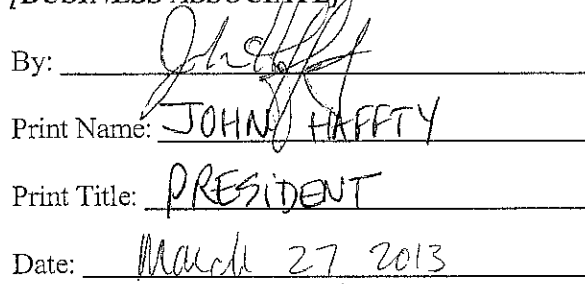 [BUSINESS ASSOCIATE]
By:
Print Name: JOHN HAFFTY
Print Title: PRESIDENT
Date: March 27 2013